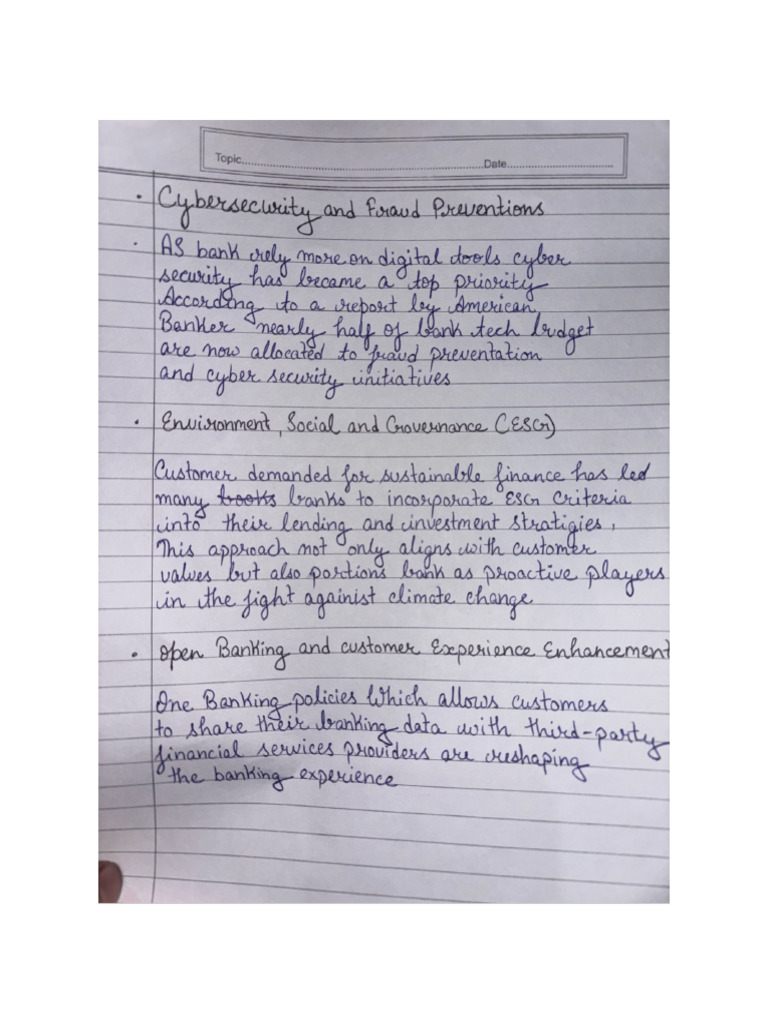 Topic..........................................................................Date................................
• Cybersecurity and Fraud Preventions
• AS bank rely more on digital tools cyber
security has became a top priority
According to a report by American
Banker nearly half of bank tech budget
are now allocated to fraud preventation
and cyber security initiatives
• Environment, Social and Governance (ESG)
Customer demanded for sustainable finance has led
many books banks to incorporate ESG Criteria
into their lending and investment stratigies,
This approach not only aligns with customer
values but also portions bank as proactive players
in the fight againist climate change
• Open Banking and customer Experience Enhancement
One Banking policies Which allows customers
to share their banking data with third-party
financial services providers are reshaping
the banking experience